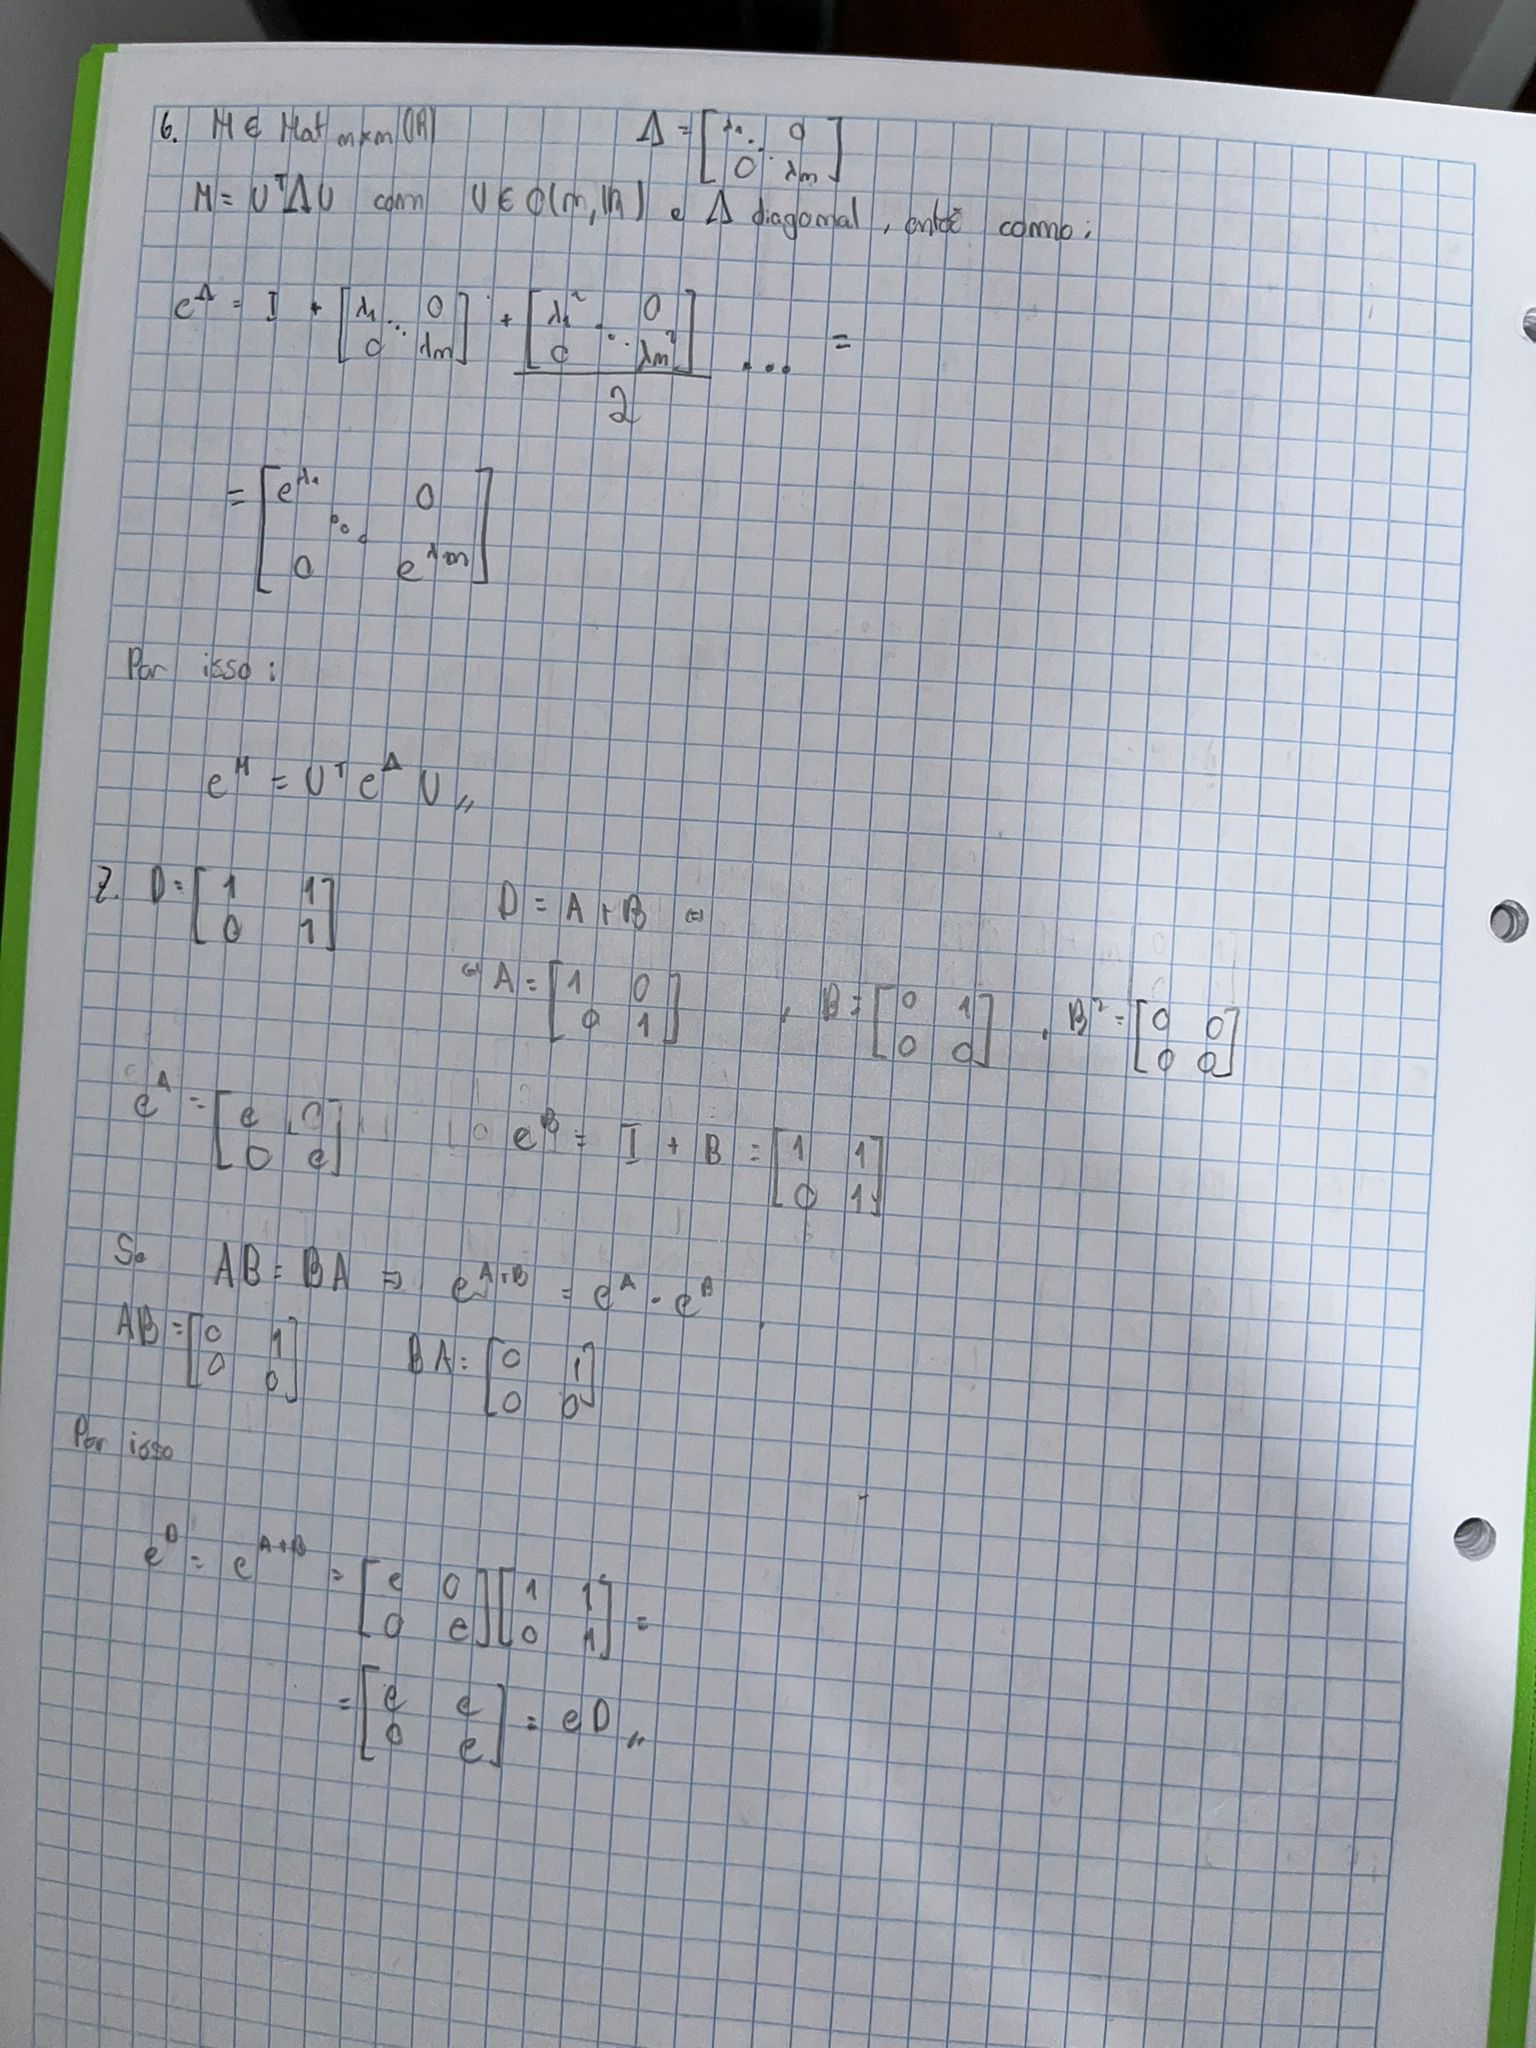 6. M ∈ Mat n×n (IR) Λ = [λ₁ ⋱ 0 ; 0 λn]
M = UᵀΛU com U ∈ O(n, IR) e Λ diagonal, então como:
e^Λ = I + [λ₁ ⋱ 0 ; 0 λn] + [λ₁² ⋱ 0 ; 0 λn²] / 2 ... =
= [e^λ₁ ⋱ 0 ; 0 e^λn]
Por isso:
e^M = Uᵀ e^Λ U,,
7. D = [1 1 ; 0 1] D = A + B ⇔
⇔ A = [1 0 ; 0 1] , B = [0 1 ; 0 0] , B² = [0 0 ; 0 0]
e^A = [e 0 ; 0 e] e^B = I + B = [1 1 ; 0 1]
Se AB = BA ⇒ e^(A+B) = e^A · e^B
AB = [0 1 ; 0 0] BA = [0 1 ; 0 0]
Por isso
e^D = e^(A+B) = [e 0 ; 0 e][1 1 ; 0 1] =
= [e e ; 0 e] = eD,,